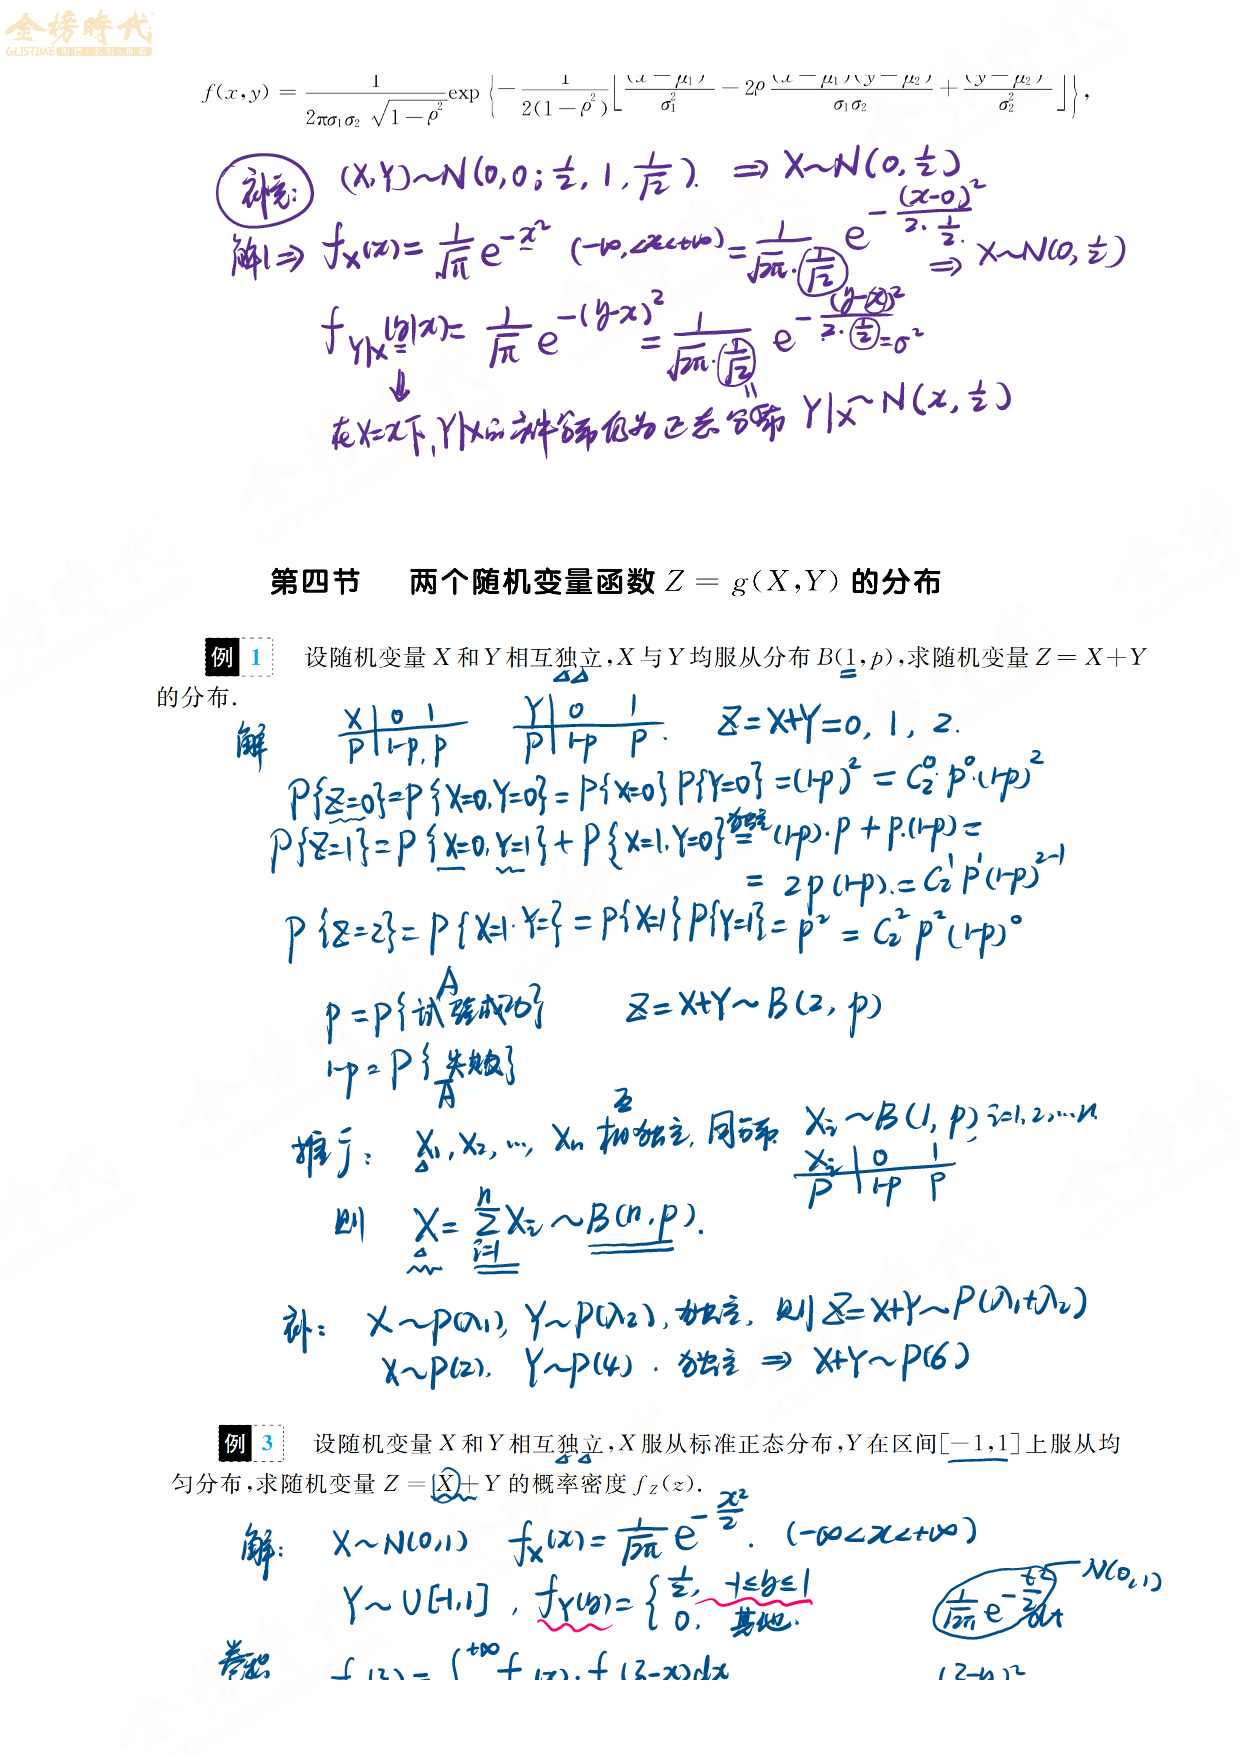 金榜時代
f(x,y) = \frac{1}{2πσ_1σ_2\sqrt{1-ρ^2}} exp{-\frac{1}{2(1-ρ^2)}[\frac{(x-μ_1)}{σ_1^2} - 2ρ\frac{(x-μ_1)(y-μ_2)}{σ_1σ_2} + \frac{(y-μ_2)}{σ_2^2}]},
补充: (X,Y)~N(0,0;\frac{1}{2},1,\frac{1}{\sqrt{2}}). ⇒ X~N(0,\frac{1}{2})
解1⇒ f_X(x)=\frac{1}{\sqrt{π}}e^{-x^2} (-∞<x<+∞)=\frac{1}{\sqrt{2π}·\frac{1}{\sqrt{2}}}e^{-\frac{(x-0)^2}{2·\frac{1}{2}}} ⇒ X~N(0,\frac{1}{2})
f_{Y|X}(y|x)=\frac{1}{\sqrt{π}}e^{-(y-x)^2}=\frac{1}{\sqrt{2π}·\frac{1}{\sqrt{2}}}e^{-\frac{(y-x)^2}{2·\frac{1}{2}}} =σ^2
在X=x下,Y|X的条件分布仍为正态分布 Y|X~N(x,\frac{1}{2})
第四节 两个随机变量函数 Z = g(X,Y) 的分布
例 1 设随机变量 X 和 Y 相互独立,X 与 Y 均服从分布 B(1,p),求随机变量 Z = X+Y
的分布.
解 X|0 1 Y|0 1 Z=X+Y=0, 1, 2.
P|1-p, p P|1-p p.
P{Z=0}=P{X=0,Y=0}=P{X=0}P{Y=0}=(1-p)^2=C_2^0·p^0·(1-p)^2
P{Z=1}=P{X=0,Y=1}+P{X=1,Y=0} 独立= (1-p)·p+p·(1-p)=
=2p(1-p).=C_2^1p^1(1-p)^{2-1}
P{Z=2}=P{X=1·Y=1}=P{X=1}P{Y=1}=p^2=C_2^2p^2(1-p)^0
A
p=P{试验成功} Z=X+Y~B(2,p)
1-p=P{失败}
\bar{A}
推广: X_1,X_2,…,X_n 相互独立,同分布 X_i~B(1,p) i=1,2,…n
X_i|0 1
P|1-p p
则 X=\sum_{i=1}^{n}X_i~B(n,p).
补: X~P(λ_1), Y~P(λ_2), 独立, 则Z=X+Y~P(λ_1+λ_2)
X~P(2), Y~P(4). 独立 ⇒ X+Y~P(6)
例 3 设随机变量 X 和 Y 相互独立,X 服从标准正态分布,Y 在区间[-1,1]上服从均
匀分布,求随机变量 Z = X + Y 的概率密度 f_Z(z).
解: X~N(0,1) f_X(x)=\frac{1}{\sqrt{2π}}e^{-\frac{x^2}{2}}. (-∞<x<+∞)
Y~U[-1,1], f_Y(y)={\frac{1}{2}, -1≤y≤1
0, 其他.
\frac{1}{\sqrt{2π}}e^{-\frac{t^2}{2}}dt N(0,1)
卷积 f_Z(z)=∫^{+∞}f(x)·f(z-x)dx (z-y)^2